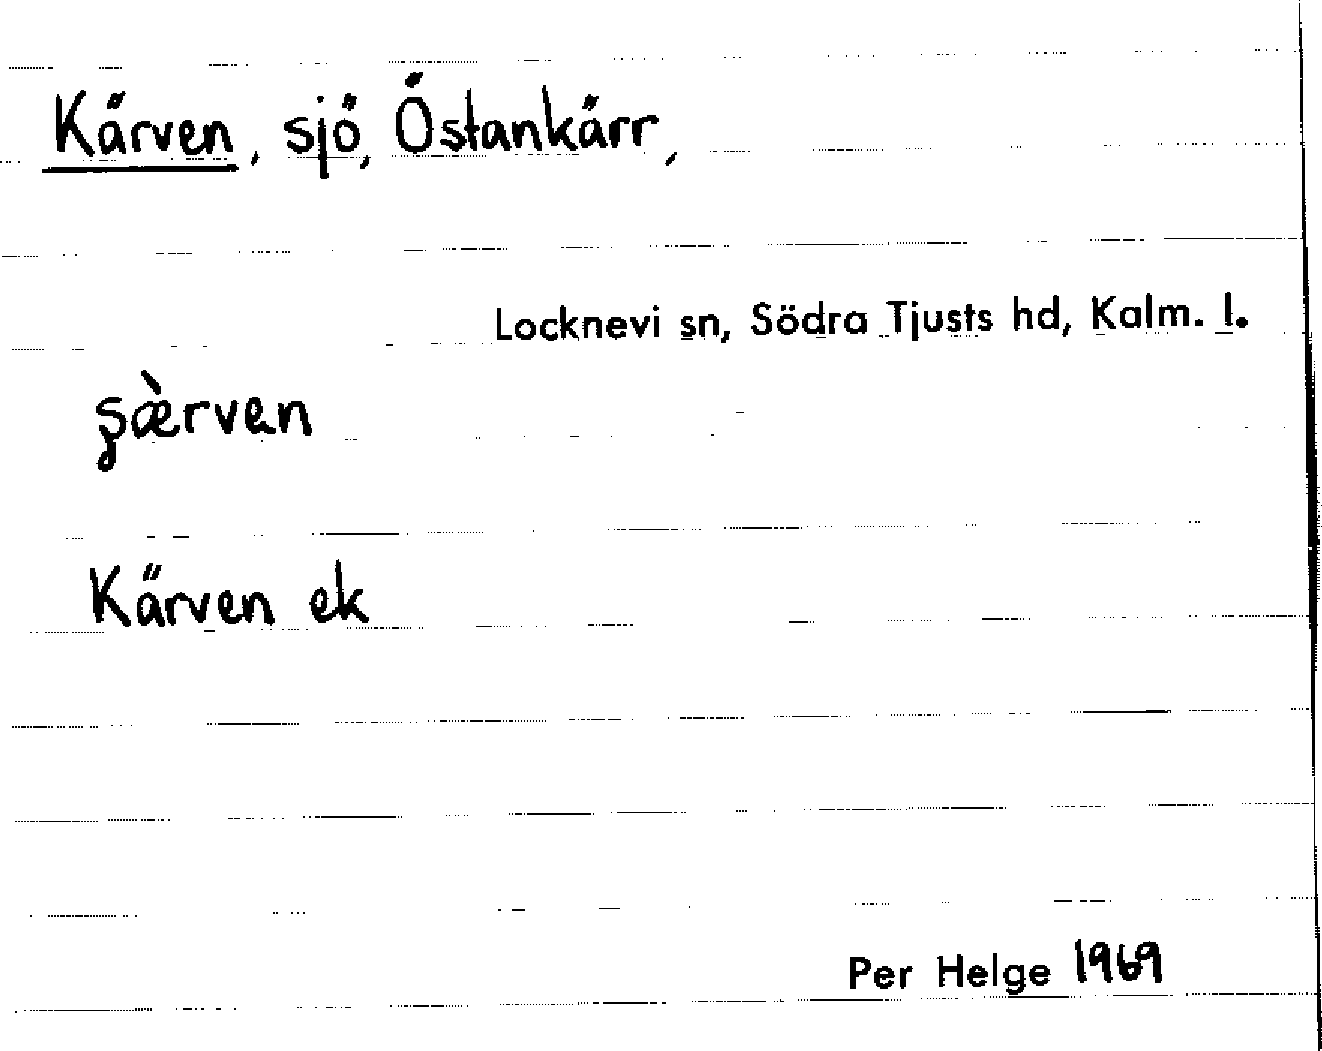 Kärven, sjö, Östankärr,
Locknevi sn, Södra Tjusts hd, Kalm. l.
ʂæ̀rven
Kärven ek
Per Helge 1969